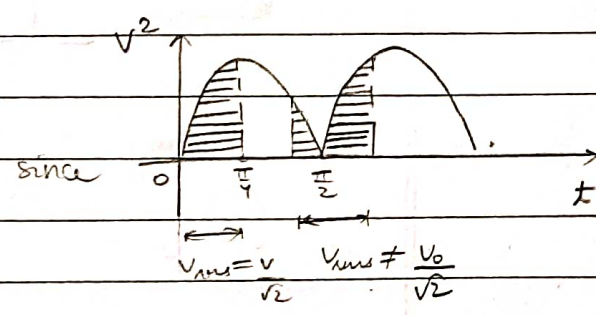 V²
since
0 π/4 π/2 t
V_rms = V/√2 V_rms ≠ V₀/√2